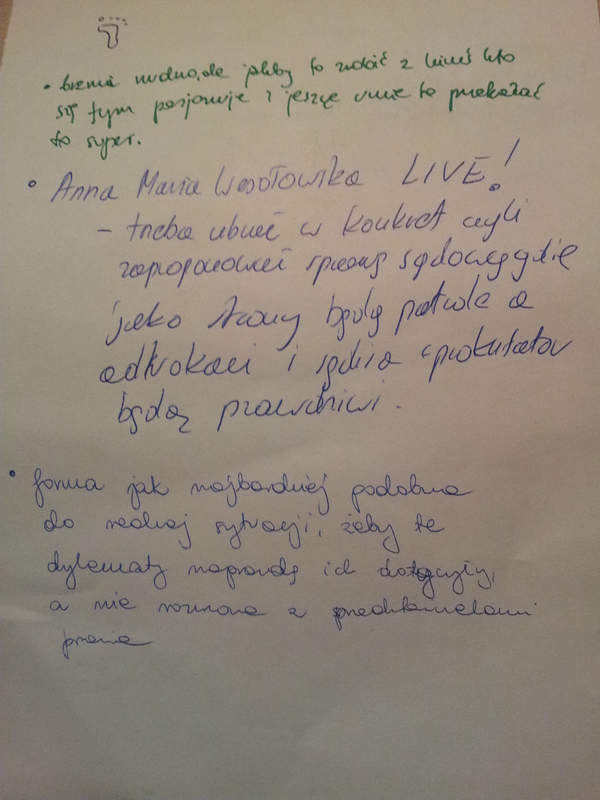 • brzmi nudno, ale jakby to zrobić z kimś kto
się tym pasjonuje i jeszcze umie to przekazać
to super.
• Anna Maria Wesołowska LIVE!
– trzeba ubrać w konkret czyli
zaproponować sprawę sądową gdzie
jako strony będą patrole a
adwokaci i sędzia i prokurator
będą prawdziwi.
• forma jak najbardziej podobna
do realnej sytuacji, żeby te
dylematy naprawdę ich dotyczyły,
a nie rozmowa z przedstawicielami
prawa